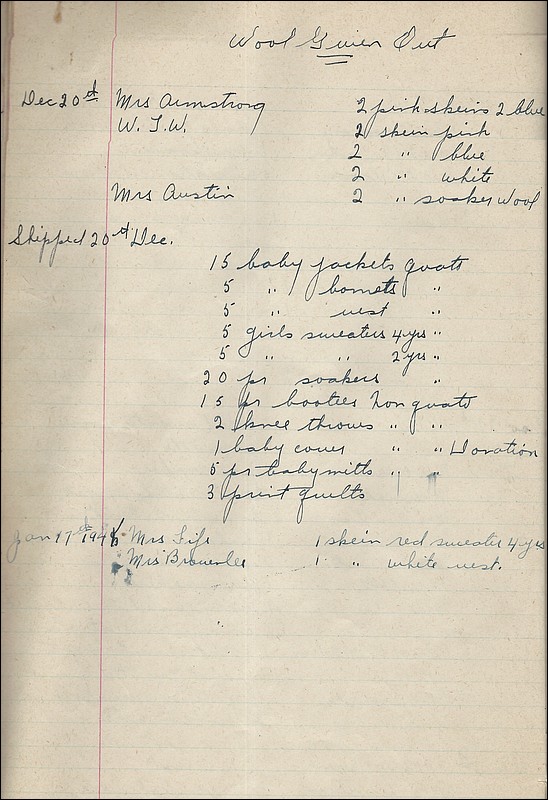 Wool Given Out
Dec 20th Mrs Armstrong 2 pink skeins 2 blue
W. J. W. 2 skein pink
2 " blue
2 " white
Mrs Austin 2 " soaker wool
Shipped 20th Dec.
15 baby jackets quota
5 " bonnets "
5 " vest "
5 girls sweaters 4 yrs "
5 " " 2 yrs "
20 pr soakers "
15 pr booties non quota
2 knee throws " "
1 baby cover " " Donation
5 pr baby mitts " "
3 print quilts
Jan 17th Mrs Fife 1 skein red sweater 4 yrs
Mrs 1 " white vest.